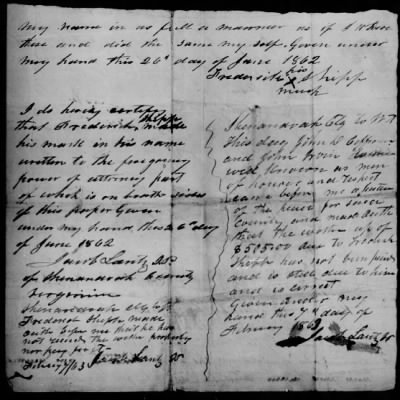 my name in as full a manner as if I were
there and did the same my self. Given under
my hand this 26th day of June 1862
Frederick his X Shipp
mark
I do hereby certify
that Frederick Shipp made
his mark in his name
written to the foregoing
power of attorney part
of which is on both sides
of this paper Given
under my hand this 26th day
of June 1862
Jacob Lantz
of Shenandoah County
Virginia
Shenandoah
Fredrick Shipp made
oath before me that he has
not
nor pay for it
Jacob Lantz
Shenandoah
this day John
and John
well known as men
of honour and respect
came before me a Justice
of the peace for said
County and made oath
that the
due to Fredrick
Shipp has not been paid
and is still due to him
and is correct
Given under my
hand this 7th day of
February 1863
Jacob Lantz